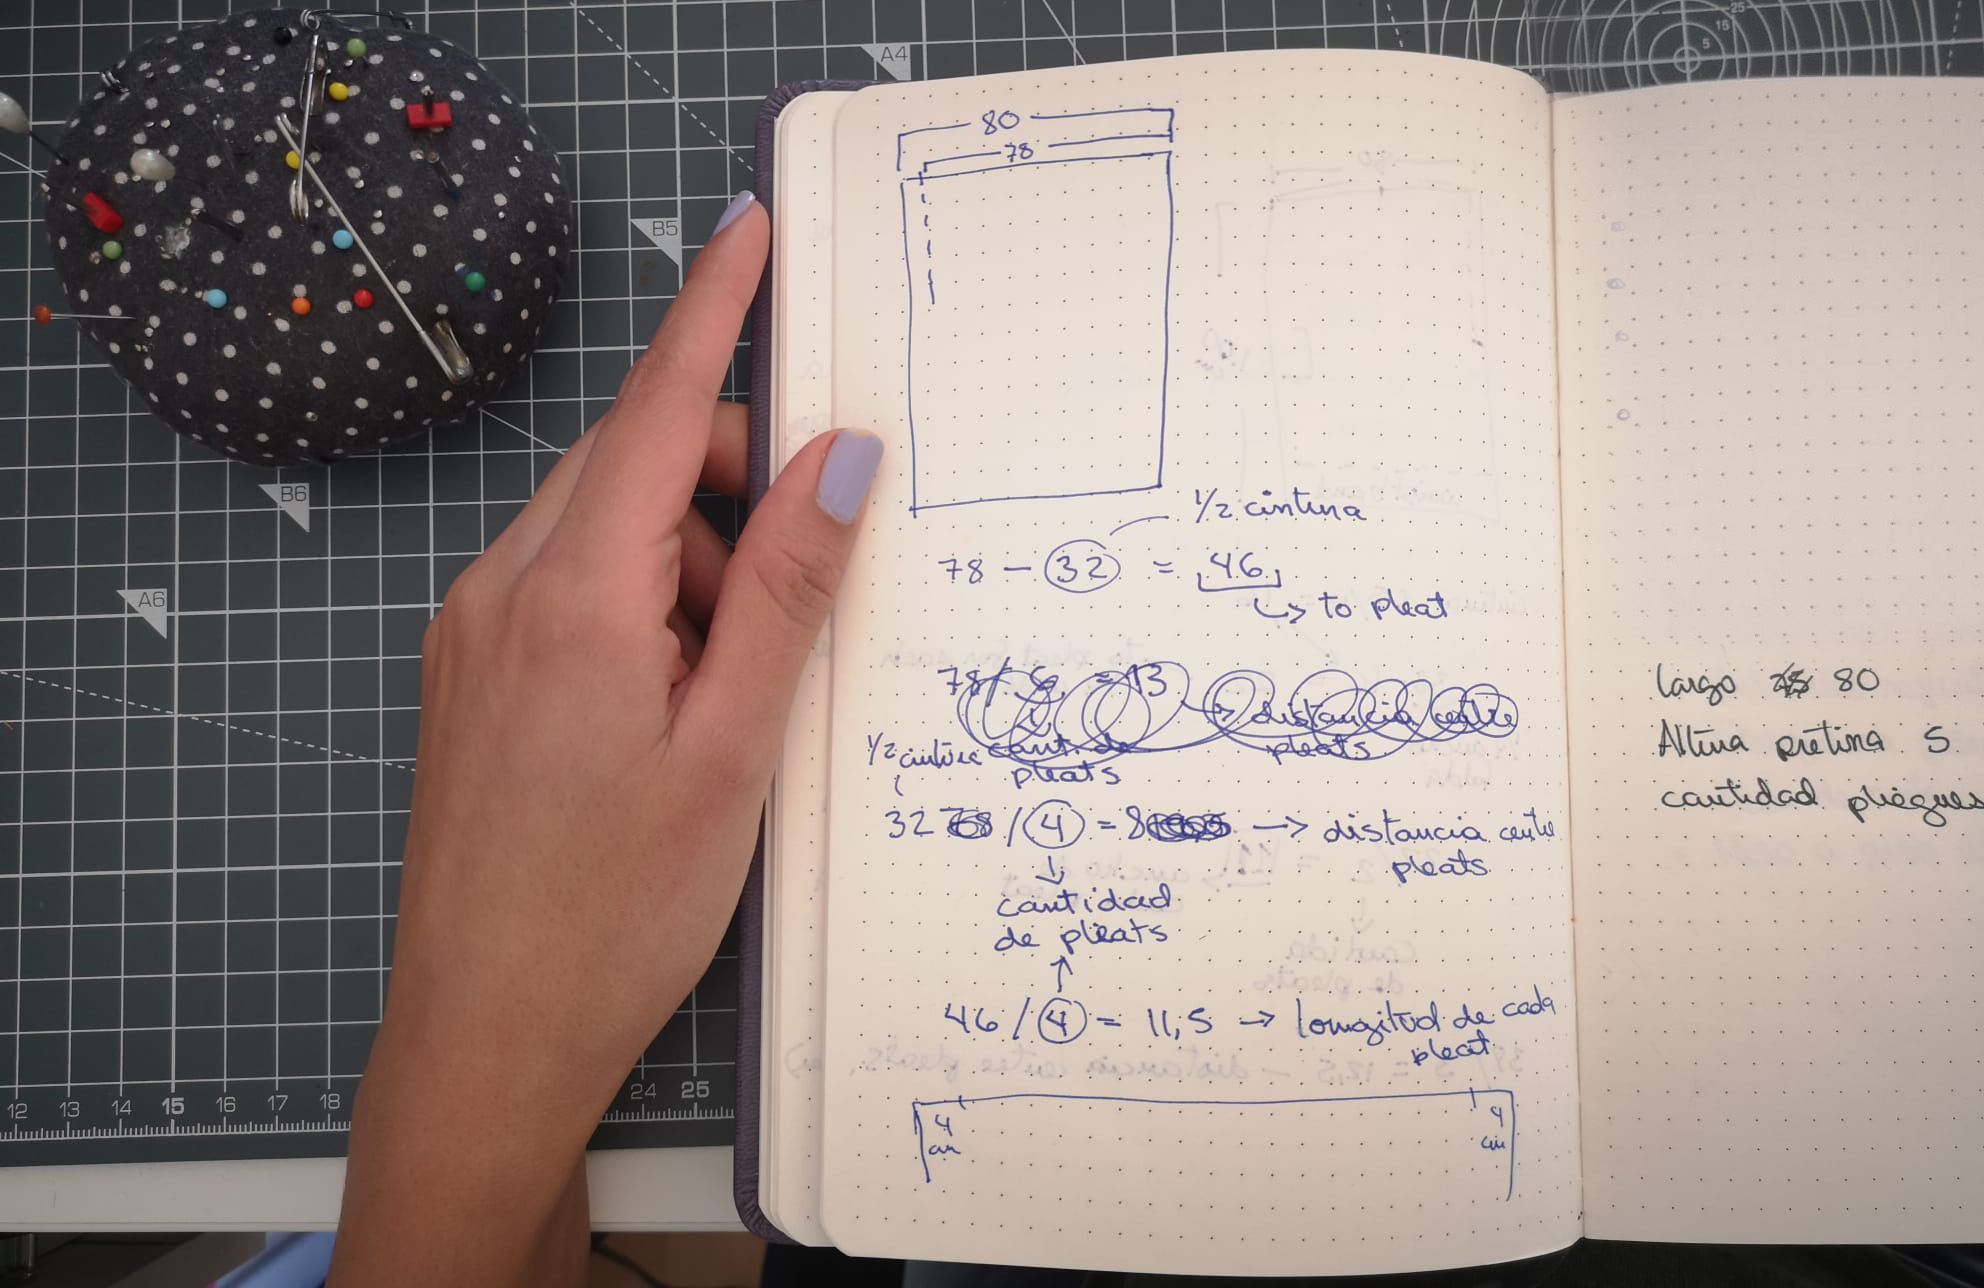 A4
B5
B6
A6
5
15
25
80
78
½ cintura
78 - 32 = 46
↳ to pleat
78 / 6 = 13 → distancia entre
pleats
cant. de
pleats
½ cintura
32 / 4 = 8 → distancia entre
pleats
↓
cantidad
de pleats
↑
46 / 4 = 11,5 → longitud de cada
pleat
4
cm
4
cm
largo 80
Altura pretina 5
cantidad pliegues
12 13 14 15 16 17 18 24 25